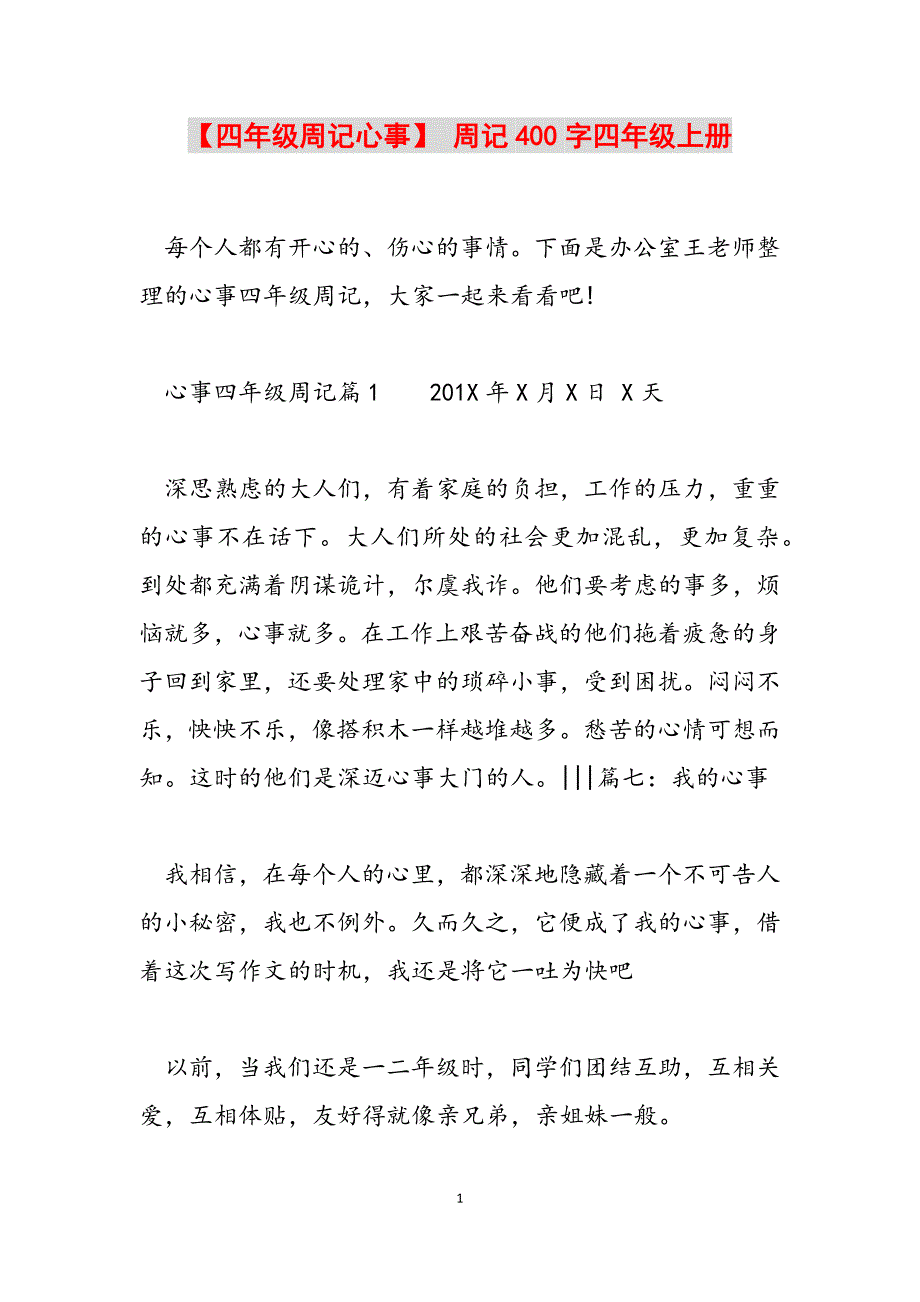 【四年级周记心事】 周记400字四年级上册
每个人都有开心的、伤心的事情。下面是办公室王老师整
理的心事四年级周记，大家一起来看看吧!
心事四年级周记篇1 201X年X月X日 X天
深思熟虑的大人们，有着家庭的负担，工作的压力，重重
的心事不在话下。大人们所处的社会更加混乱，更加复杂。
到处都充满着阴谋诡计，尔虞我诈。他们要考虑的事多，烦
恼就多，心事就多。在工作上艰苦奋战的他们拖着疲惫的身
子回到家里，还要处理家中的琐碎小事，受到困扰。闷闷不
乐，怏怏不乐，像搭积木一样越堆越多。愁苦的心情可想而
知。这时的他们是深迈心事大门的人。|||篇七：我的心事
我相信，在每个人的心里，都深深地隐藏着一个不可告人
的小秘密，我也不例外。久而久之，它便成了我的心事，借
着这次写作文的时机，我还是将它一吐为快吧
以前，当我们还是一二年级时，同学们团结互助，互相关
爱，互相体贴，友好得就像亲兄弟，亲姐妹一般。
1